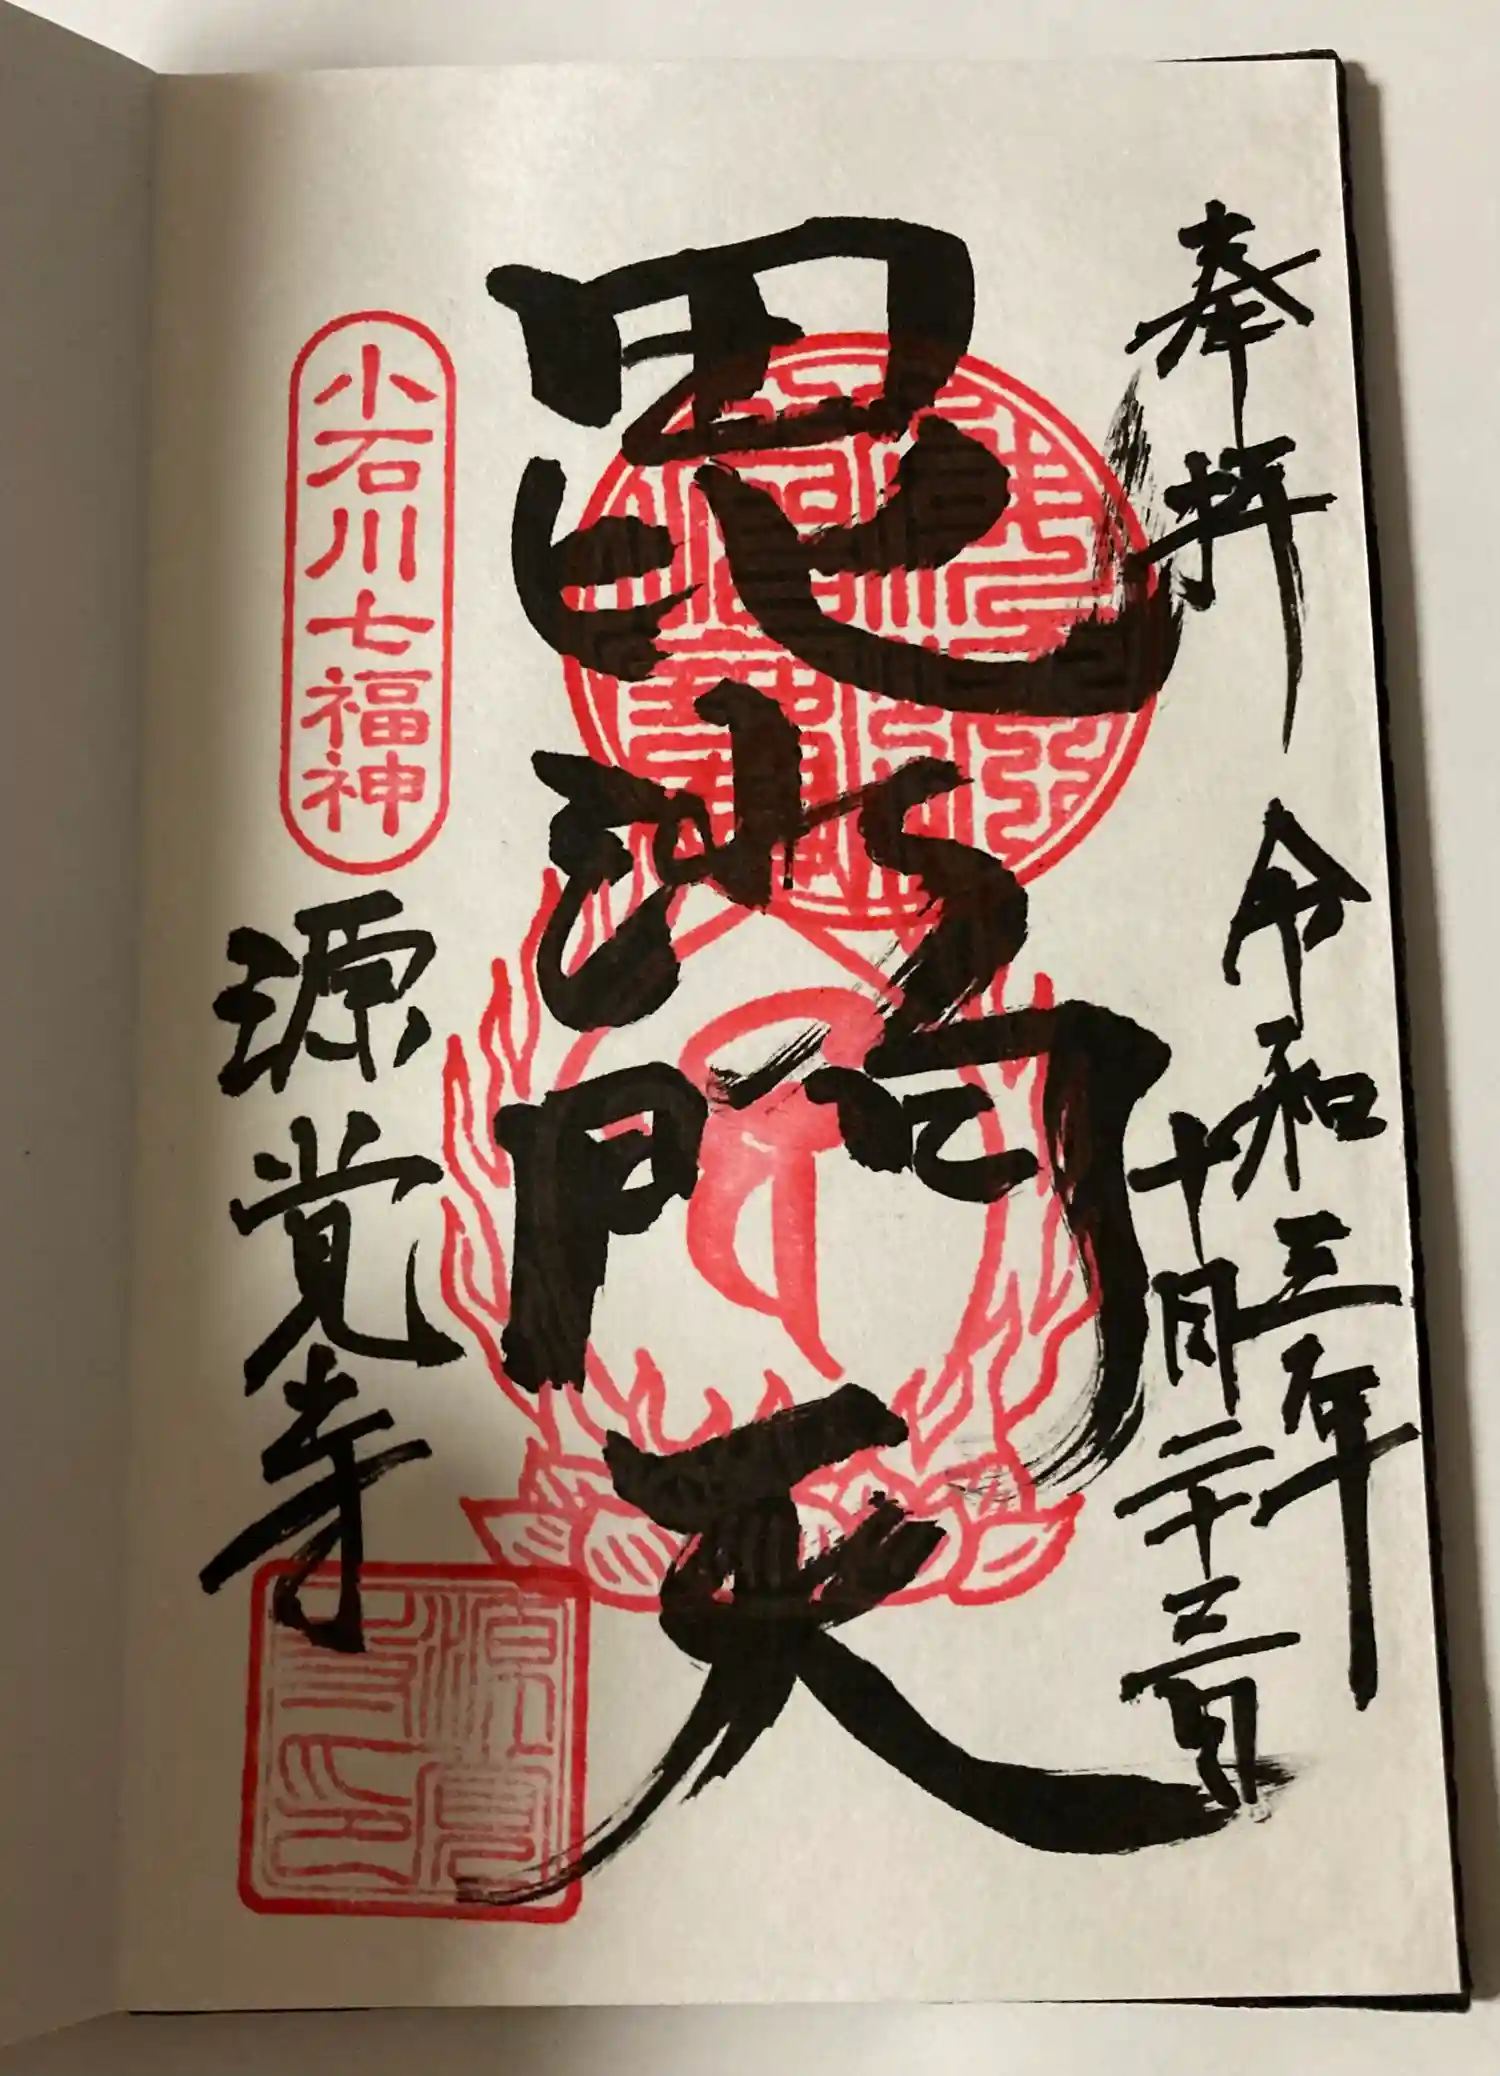 奉拝
令和三年
十月二十三日
毘沙門天
小石川七福神
源覚寺
源覚寺印